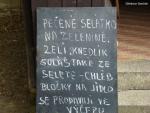 PEČENÉ SELÁTKO
NA ZELENINĚ,
ZELÍ, KNEDLÍK
GULÁŠ TAKÉ ZE
SELETE - CHLÉB
BLOČKY NA JÍDLO
SE PRODÁVAJÍ VE
VÝČEPU